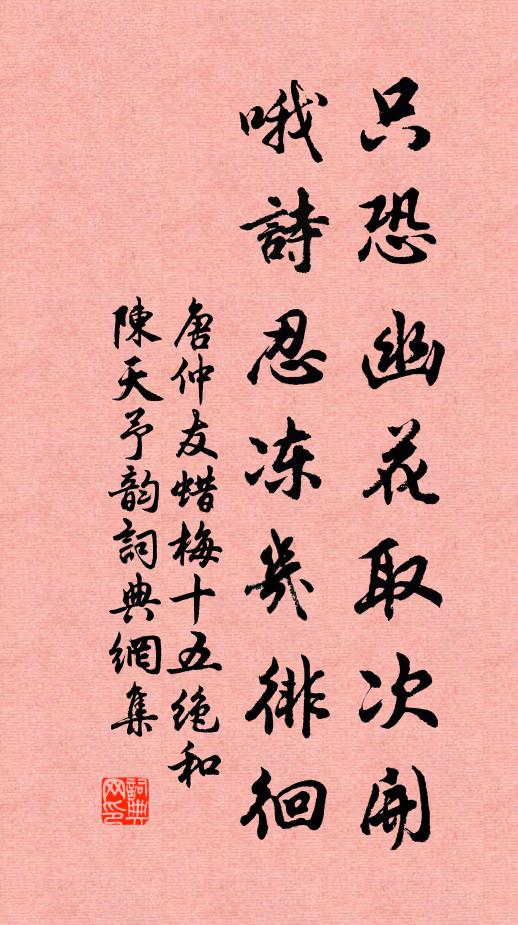 只恐幽花取次開
哦詩忍冻幾徘徊
唐仲友蜡梅十五绝和
陳天予韵詞典網集
詞典网印